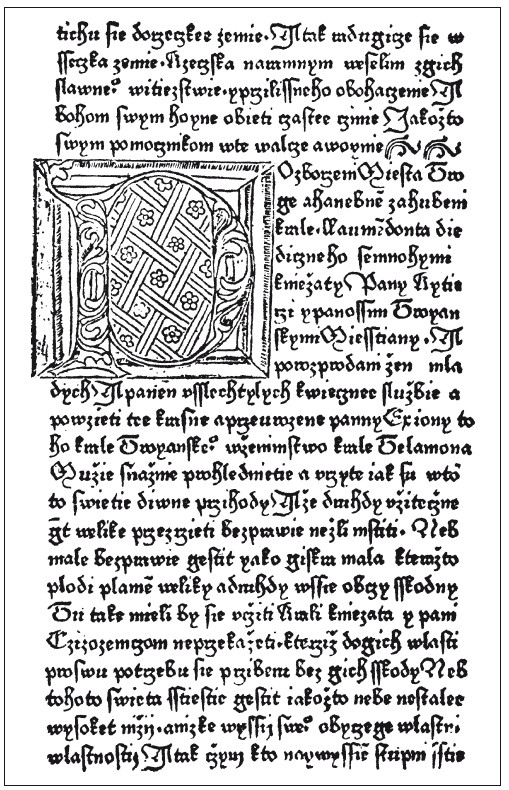 tichu sie dorzeczkee zemie. A tak radugicze sie w
ssseczka zemie. Rzeczska naramnym weselim zgich
slawne° witiezstwie. y przilissneho obohaczenie A
bohom swym hoyne obieti czastee czinie Jakozto
swym pomocznikom wte walcze a woynie
O zborzem Miesta Tro
ge ahanebne zahubeni
krale. Laumedonta die
diczneho semnohymi
kniezaty Pany Rytie
rzi ypanossim Troyan
skym Miesstiany. A
porozprodani zen mla
dych A panen vsslechtylych kwiecznee sluzbie a
powzieti tee krasne aprzeurozene panny Exiony to
ho krale Troyanske° wzeninstwo krale Telamona
Muzie snaznie prohlednietie a vrzyte iak su wtom
to swietie diwne przihody A ze druhdy vziteczne
gt welike przezrzieti bezprawie nezli mstiti. Neb
male bezprawie gestit yako giskra mala kterazto
plodi plamē weliky adruhdy wssie obczy sskodny
Tu take mieli by sie vcziti Krali kniezata y pani
Czizozemczom neprzekazeti. kterziz dogich wlasti
proswu potrzebu sie prziberu bez gich sskody Neb
tohoto swieta sstiestie gestit iakozto nebe nestalee
wysokee nizij. anizke wyssij swe° obyczege wlastni
wlastnosti, A tak czym kto naywyssie stupni sstie